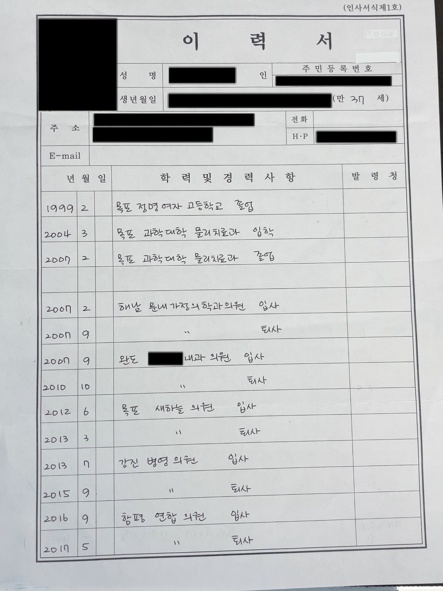 (인사서식제1호)
이 력 서
성 명 인 주 민 등 록 번 호
생년월일 (만 37 세)
주 소 전화
H·P
E-mail
년 월 일 학 력 및 경 력 사 항 발 령 청
1999 2 목포 정명여자 고등학교 졸업
2004 3 목포 과학대학 물리치료과 입학
2007 2 목포 과학대학 물리치료과 졸업
2007 2 해남 문내가정의학과의원 입사
2007 9 〃 퇴사
2007 9 완도 내과 의원 입사
2010 10 〃 퇴사
2012 6 목포 새하늘 의원 입사
2013 3 〃 퇴사
2013 7 강진 병영 의원 입사
2015 9 〃 퇴사
2016 9 함평 연합 의원 입사
2017 5 〃 퇴사